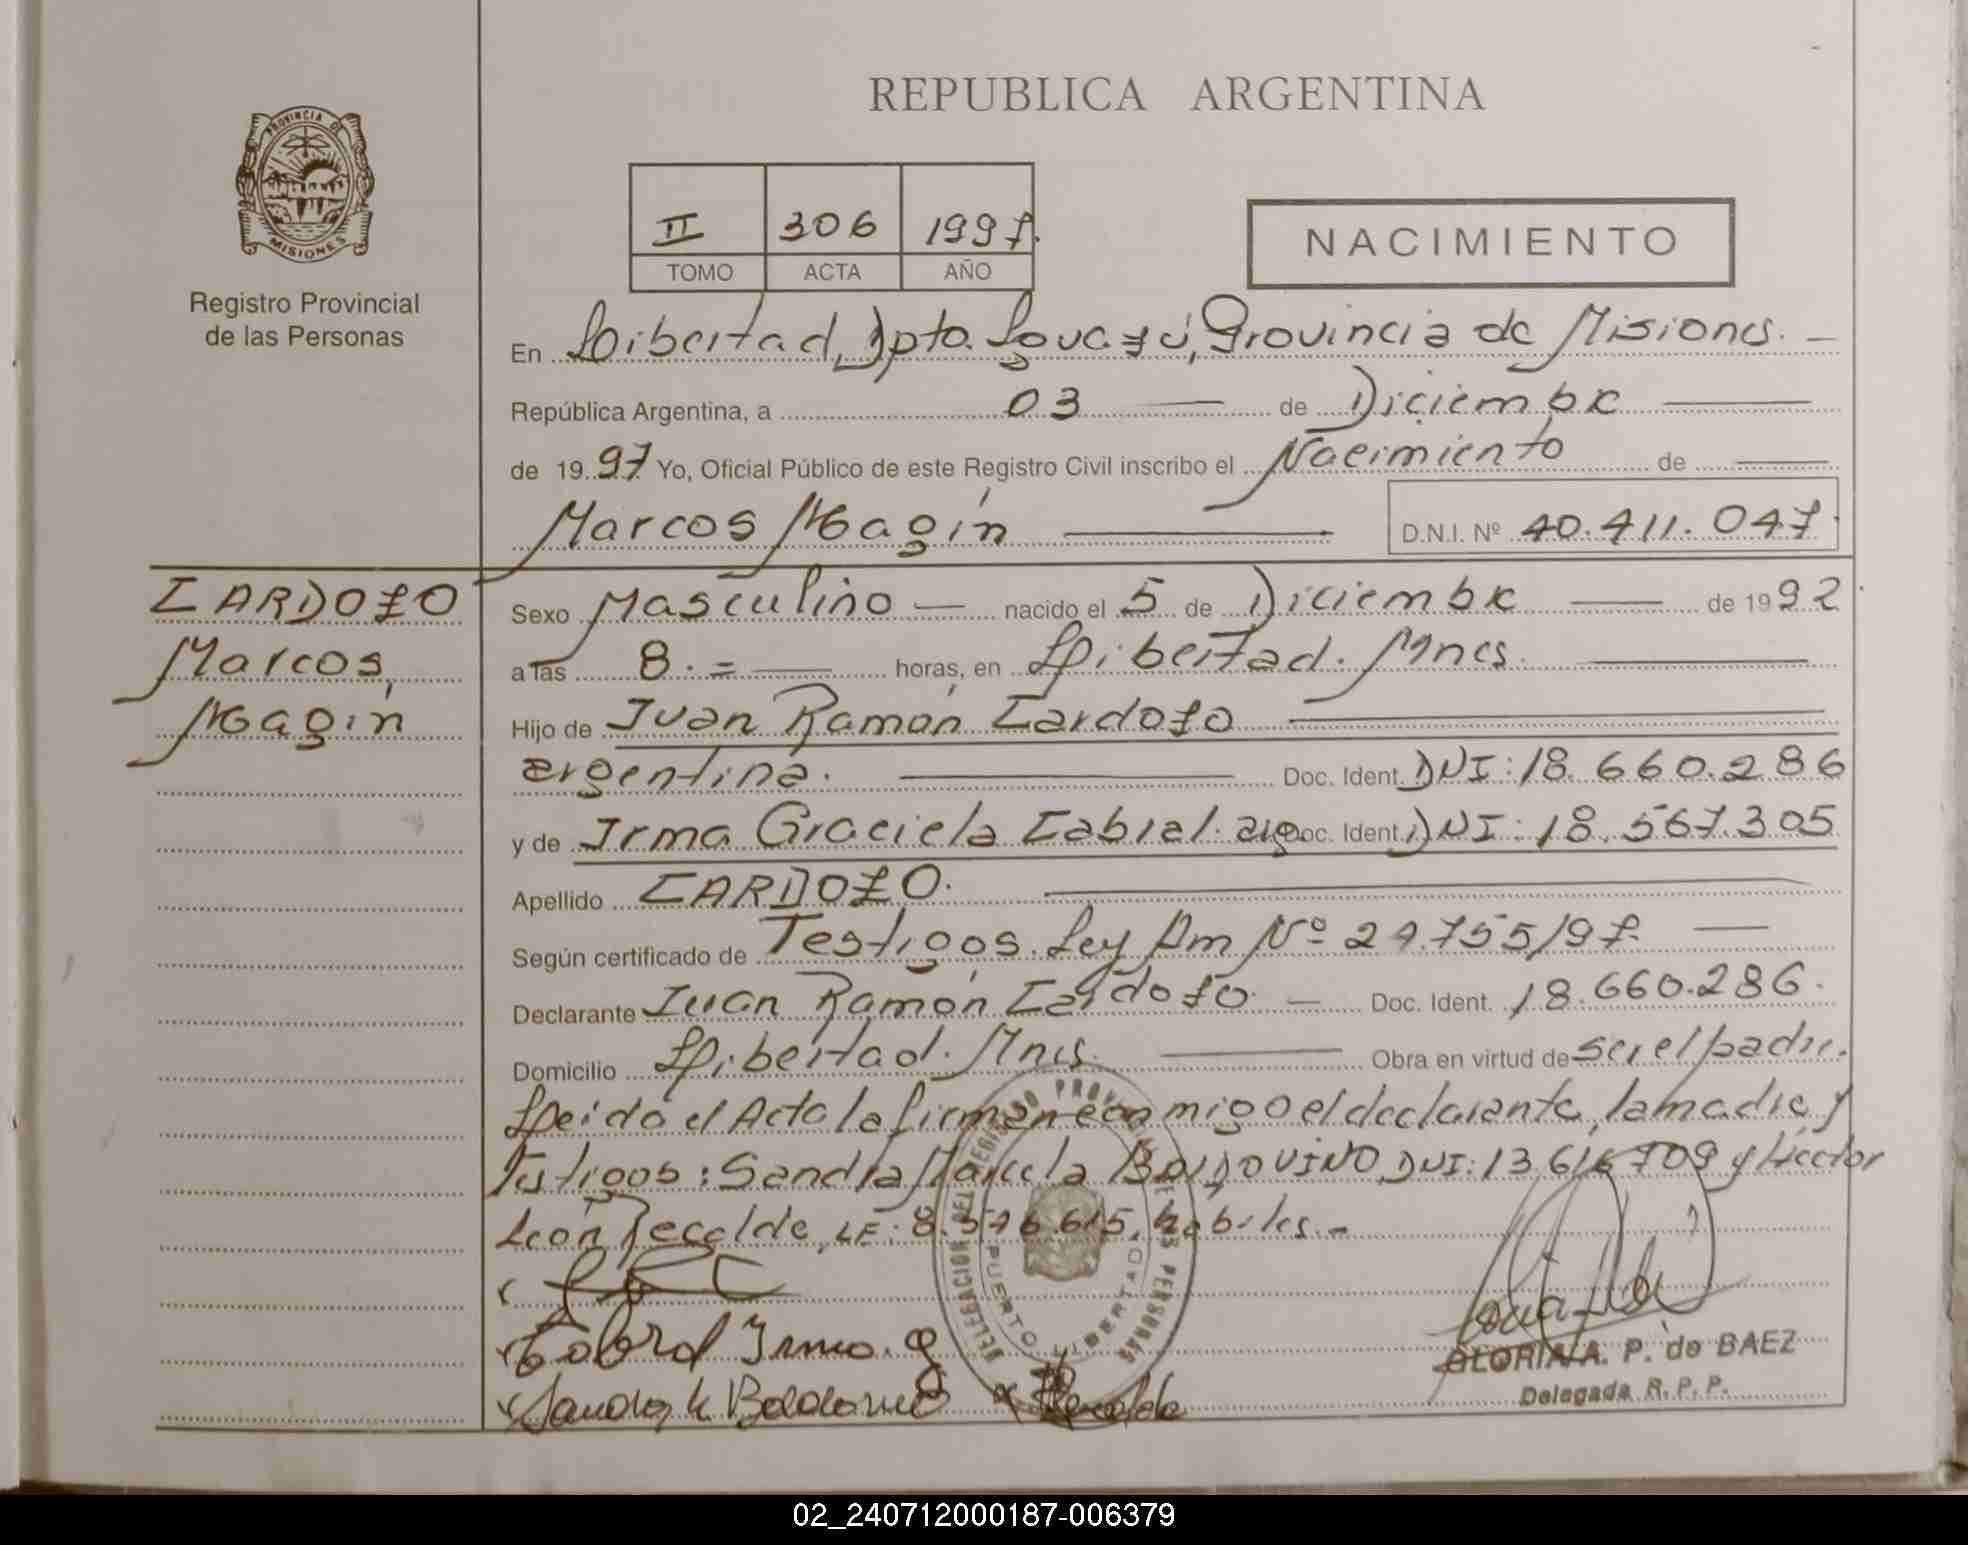 REPUBLICA ARGENTINA
PROVINCIA DE
MISIONES
Registro Provincial
de las Personas
II 306 1997.
TOMO ACTA AÑO
NACIMIENTO
En Libertad, Dpto. Iguazú, Provincia de Misiones. —
República Argentina, a 03 — de Diciembre —
de 1997 Yo, Oficial Público de este Registro Civil inscribo el Nacimiento de —
Marcos Magín — D.N.I. Nº 40.411.047.
CARDOZO
Marcos,
Magín
Sexo Masculino — nacido el 5 de Diciembre — de 1992
a las 8. = — horas, en Libertad. Mnes. —
Hijo de Juan Ramón Cardozo —
argentina. — Doc. Ident. DNI: 18.660.286
y de Irma Graciela Cabral. arg. Doc. Ident. DNI: 18.567.305
Apellido CARDOZO. —
Según certificado de Testigos. Ley Nº 24.755/97. —
Declarante Juan Ramón Cardozo. — Doc. Ident. 18.660.286.
Domicilio Libertad. Mnes. — Obra en virtud de ser el padre.
Leida el Acta la firman conmigo el declarante, la madre, y
Testigos: Sandra Marcela BALDOVINO, DNI: 13.616.709 y Héctor
León Recalde, LE: 8.546.615, habiles. -
DELEGACION DEL REGISTRO PROVINCIAL DE LAS PERSONAS
PUERTO LIBERTAD
Cabral Irma. g
Sandra M Baldovino x Recalde
GLORIA A. P. de BAEZ
Delegada R. P. P.
02_240712000187-006379